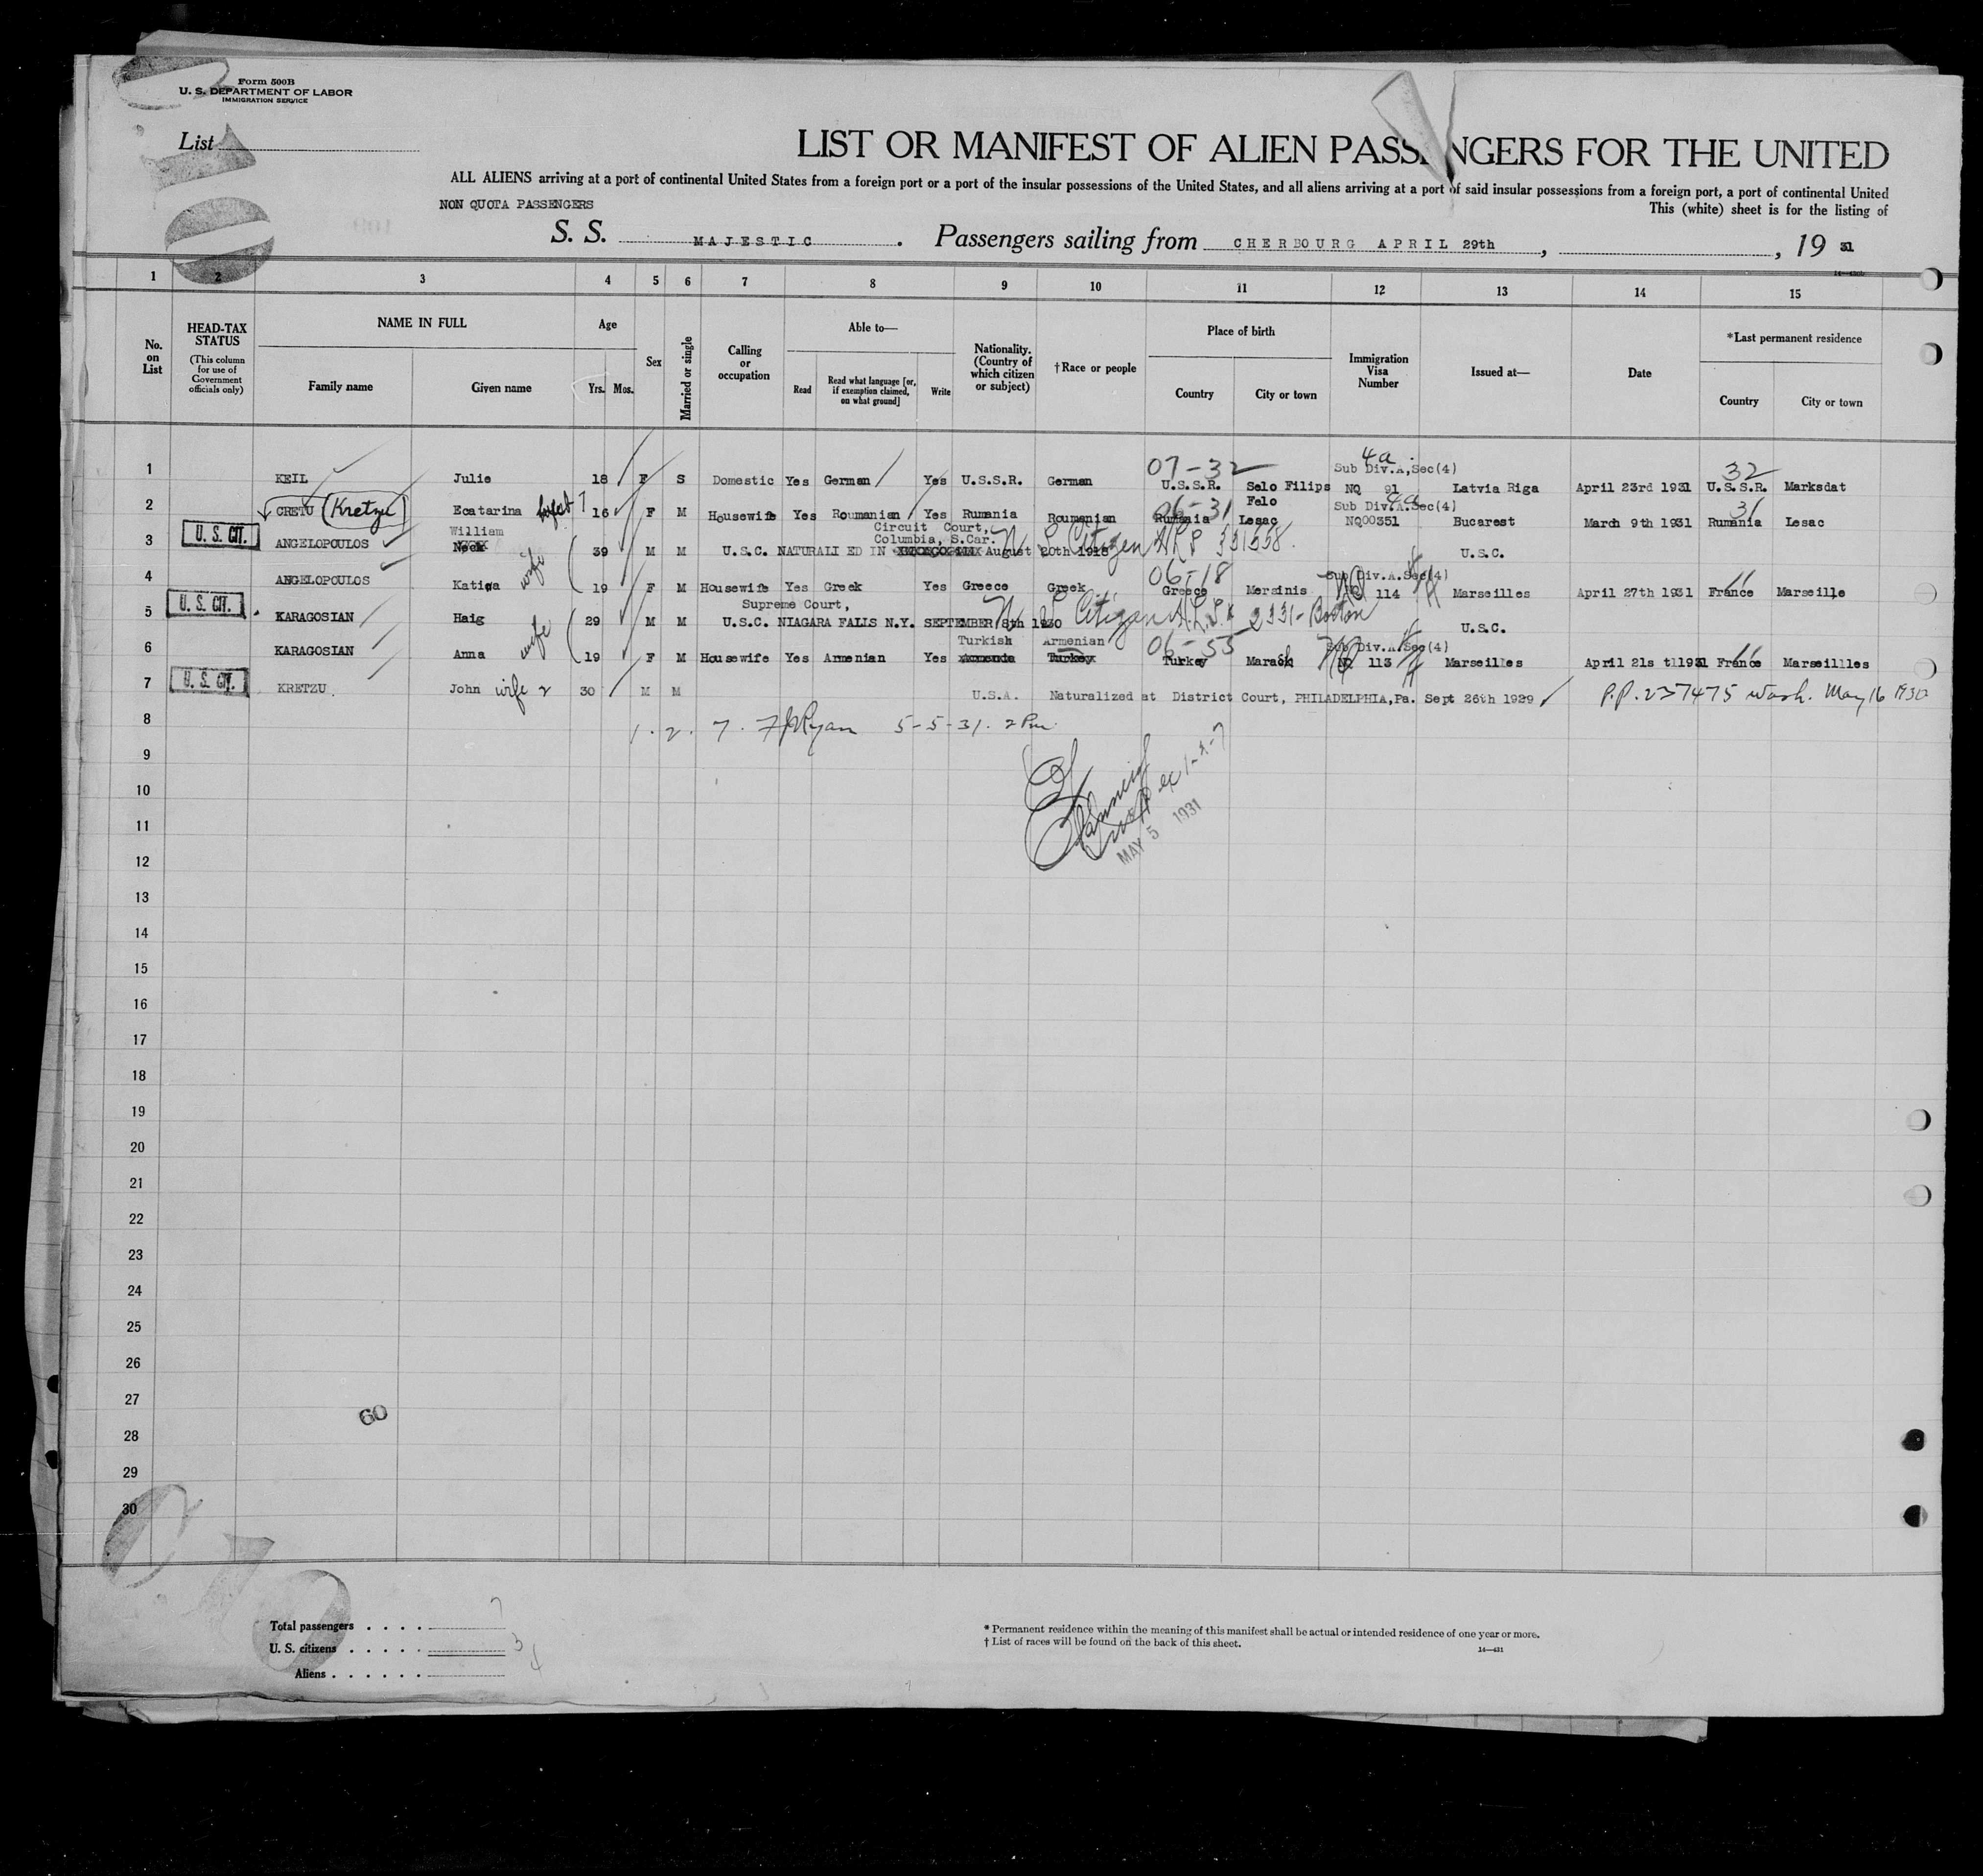 Form 500B
U. S. DEPARTMENT OF LABOR
IMMIGRATION SERVICE
List
LIST OR MANIFEST OF ALIEN PASSENGERS FOR THE UNITED
ALL ALIENS arriving at a port of continental United States from a foreign port or a port of the insular possessions of the United States, and all aliens arriving at a port of said insular possessions from a foreign port, a port of continental United
This (white) sheet is for the listing of
NON QUOTA PASSENGERS
S. S. MAJESTIC . Passengers sailing from CHERBOURG APRIL 29th , , 19 31
1 2 3 4 5 6 7 8 9 10 11 12 13 14 15
No. on List
HEAD-TAX STATUS
(This column for use of Government officials only)
NAME IN FULL
Family name Given name
Age
Yrs. Mos.
Sex
Married or single
Calling or occupation
Able to—
Read
Read what language [or, if exemption claimed, on what ground]
Write
Nationality. (Country of which citizen or subject)
†Race or people
Place of birth
Country City or town
Immigration Visa Number
Issued at—
Date
*Last permanent residence
Country City or town
07-32 4a 32
Sub Div.A,Sec(4)
1 KEIL Julie 18 F S Domestic Yes German Yes U.S.S.R. German U.S.S.R. Selo Filips NQ 91 Latvia Riga April 23rd 1931 U.S.S.R. Marksdat
06-31 Felo Sub Div.A.Sec(4) 4a 31
2 CRETU (Kretzu) Ecatarina 16 F M Housewife Yes Roumanian Yes Rumania Roumanian Rumania Lesac NQ00351 Bucarest March 9th 1931 Rumania Lesac
U. S. CIT. William Circuit Court,
Columbia, S.Car.
3 ANGELOPOULOS Nick 39 M M U.S.C. NATURALI ED IN August 20th 1918 N S Citizen 331558. U.S.C.
wife 06-18 Sub Div.A.Sec(4)
4 ANGELOPOULOS Katina 19 F M Housewife Yes Greek Yes Greece Greek Greece Mersinis NQ 114 Marseilles April 27th 1931 France Marseille
U. S. CIT. Supreme Court,
5 KARAGOSIAN Haig 29 M M U.S.C. NIAGARA FALLS N.Y. SEPTEMBER 8th 1930 Citizen 2331-Boston U.S.C.
wife Turkish Armenian 06-55 Sub Div.A.Sec(4)
6 KARAGOSIAN Anna 19 F M Housewife Yes Armenian Yes Armenia Turkey Turkey Marash NQ 113 Marseilles April 21s t1931 France Marseillles
U. S. CIT.
7 KRETZU John wife 2 30 M M U.S.A. Naturalized at District Court, PHILADELPHIA,Pa. Sept 26th 1929 P.P. 237475 Wash. May 16 1930
8 1. 2. 7. Ryan 5-5-31. 2 Pm
9
10
11 MAY 5 1931
12
13
14
15
16
17
18
19
20
21
22
23
24
25
26
27
60
28
29
30
Total passengers . . . . 7
U. S. citizens . . . . . 3
Aliens . . . . . . 4
* Permanent residence within the meaning of this manifest shall be actual or intended residence of one year or more.
† List of races will be found on the back of this sheet.
14—431